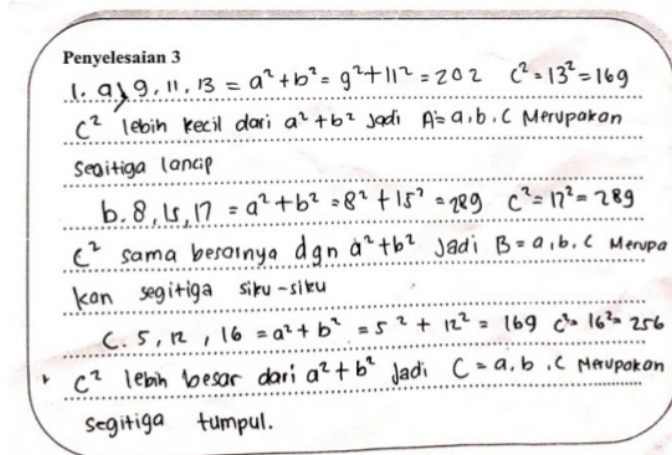 Penyelesaian 3
1. a) 9, 11, 13 = a² + b² = 9² + 11² = 202 c² = 13² = 169
c² lebih kecil dari a² + b² Jadi A = a, b, c Merupakan
Segitiga lancip
b. 8, 15, 17 = a² + b² = 8² + 15² = 289 c² = 17² = 289
c² sama besarnya dgn a² + b² Jadi B = a, b, c Merupa
kan segitiga siku-siku
C. 5, 12, 16 = a² + b² = 5² + 12² = 169 c² = 16² = 256
c² lebih besar dari a² + b² Jadi C = a, b, c Merupakan
segitiga tumpul.